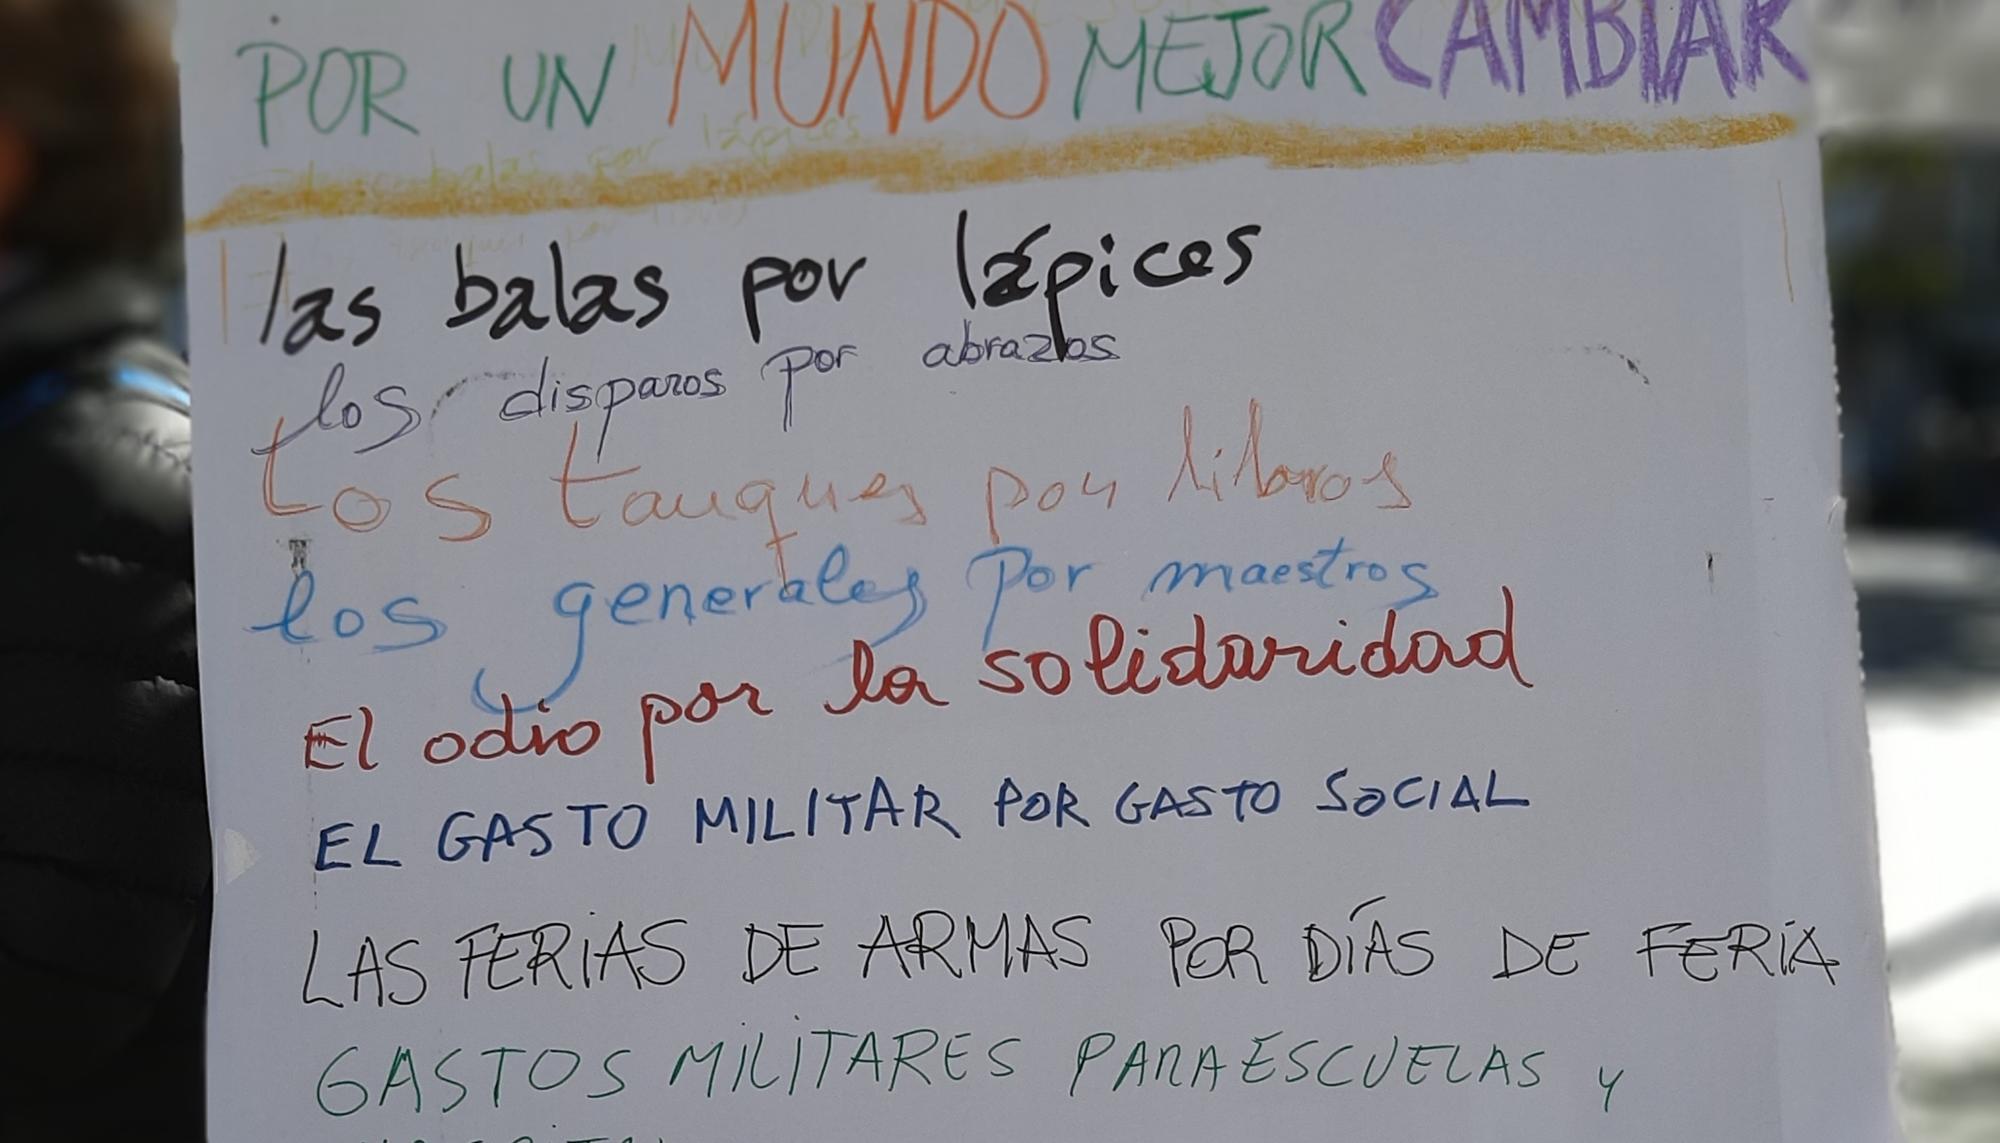 POR UN MUNDO MEJOR CAMBIAR
las balas por lápices
los disparos por abrazos
Los tanques por libros
los generales por maestros
El odio por la solidaridad
EL GASTO MILITAR POR GASTO SOCIAL
LAS FERIAS DE ARMAS POR DÍAS DE FERIA
GASTOS MILITARES PARA ESCUELAS y